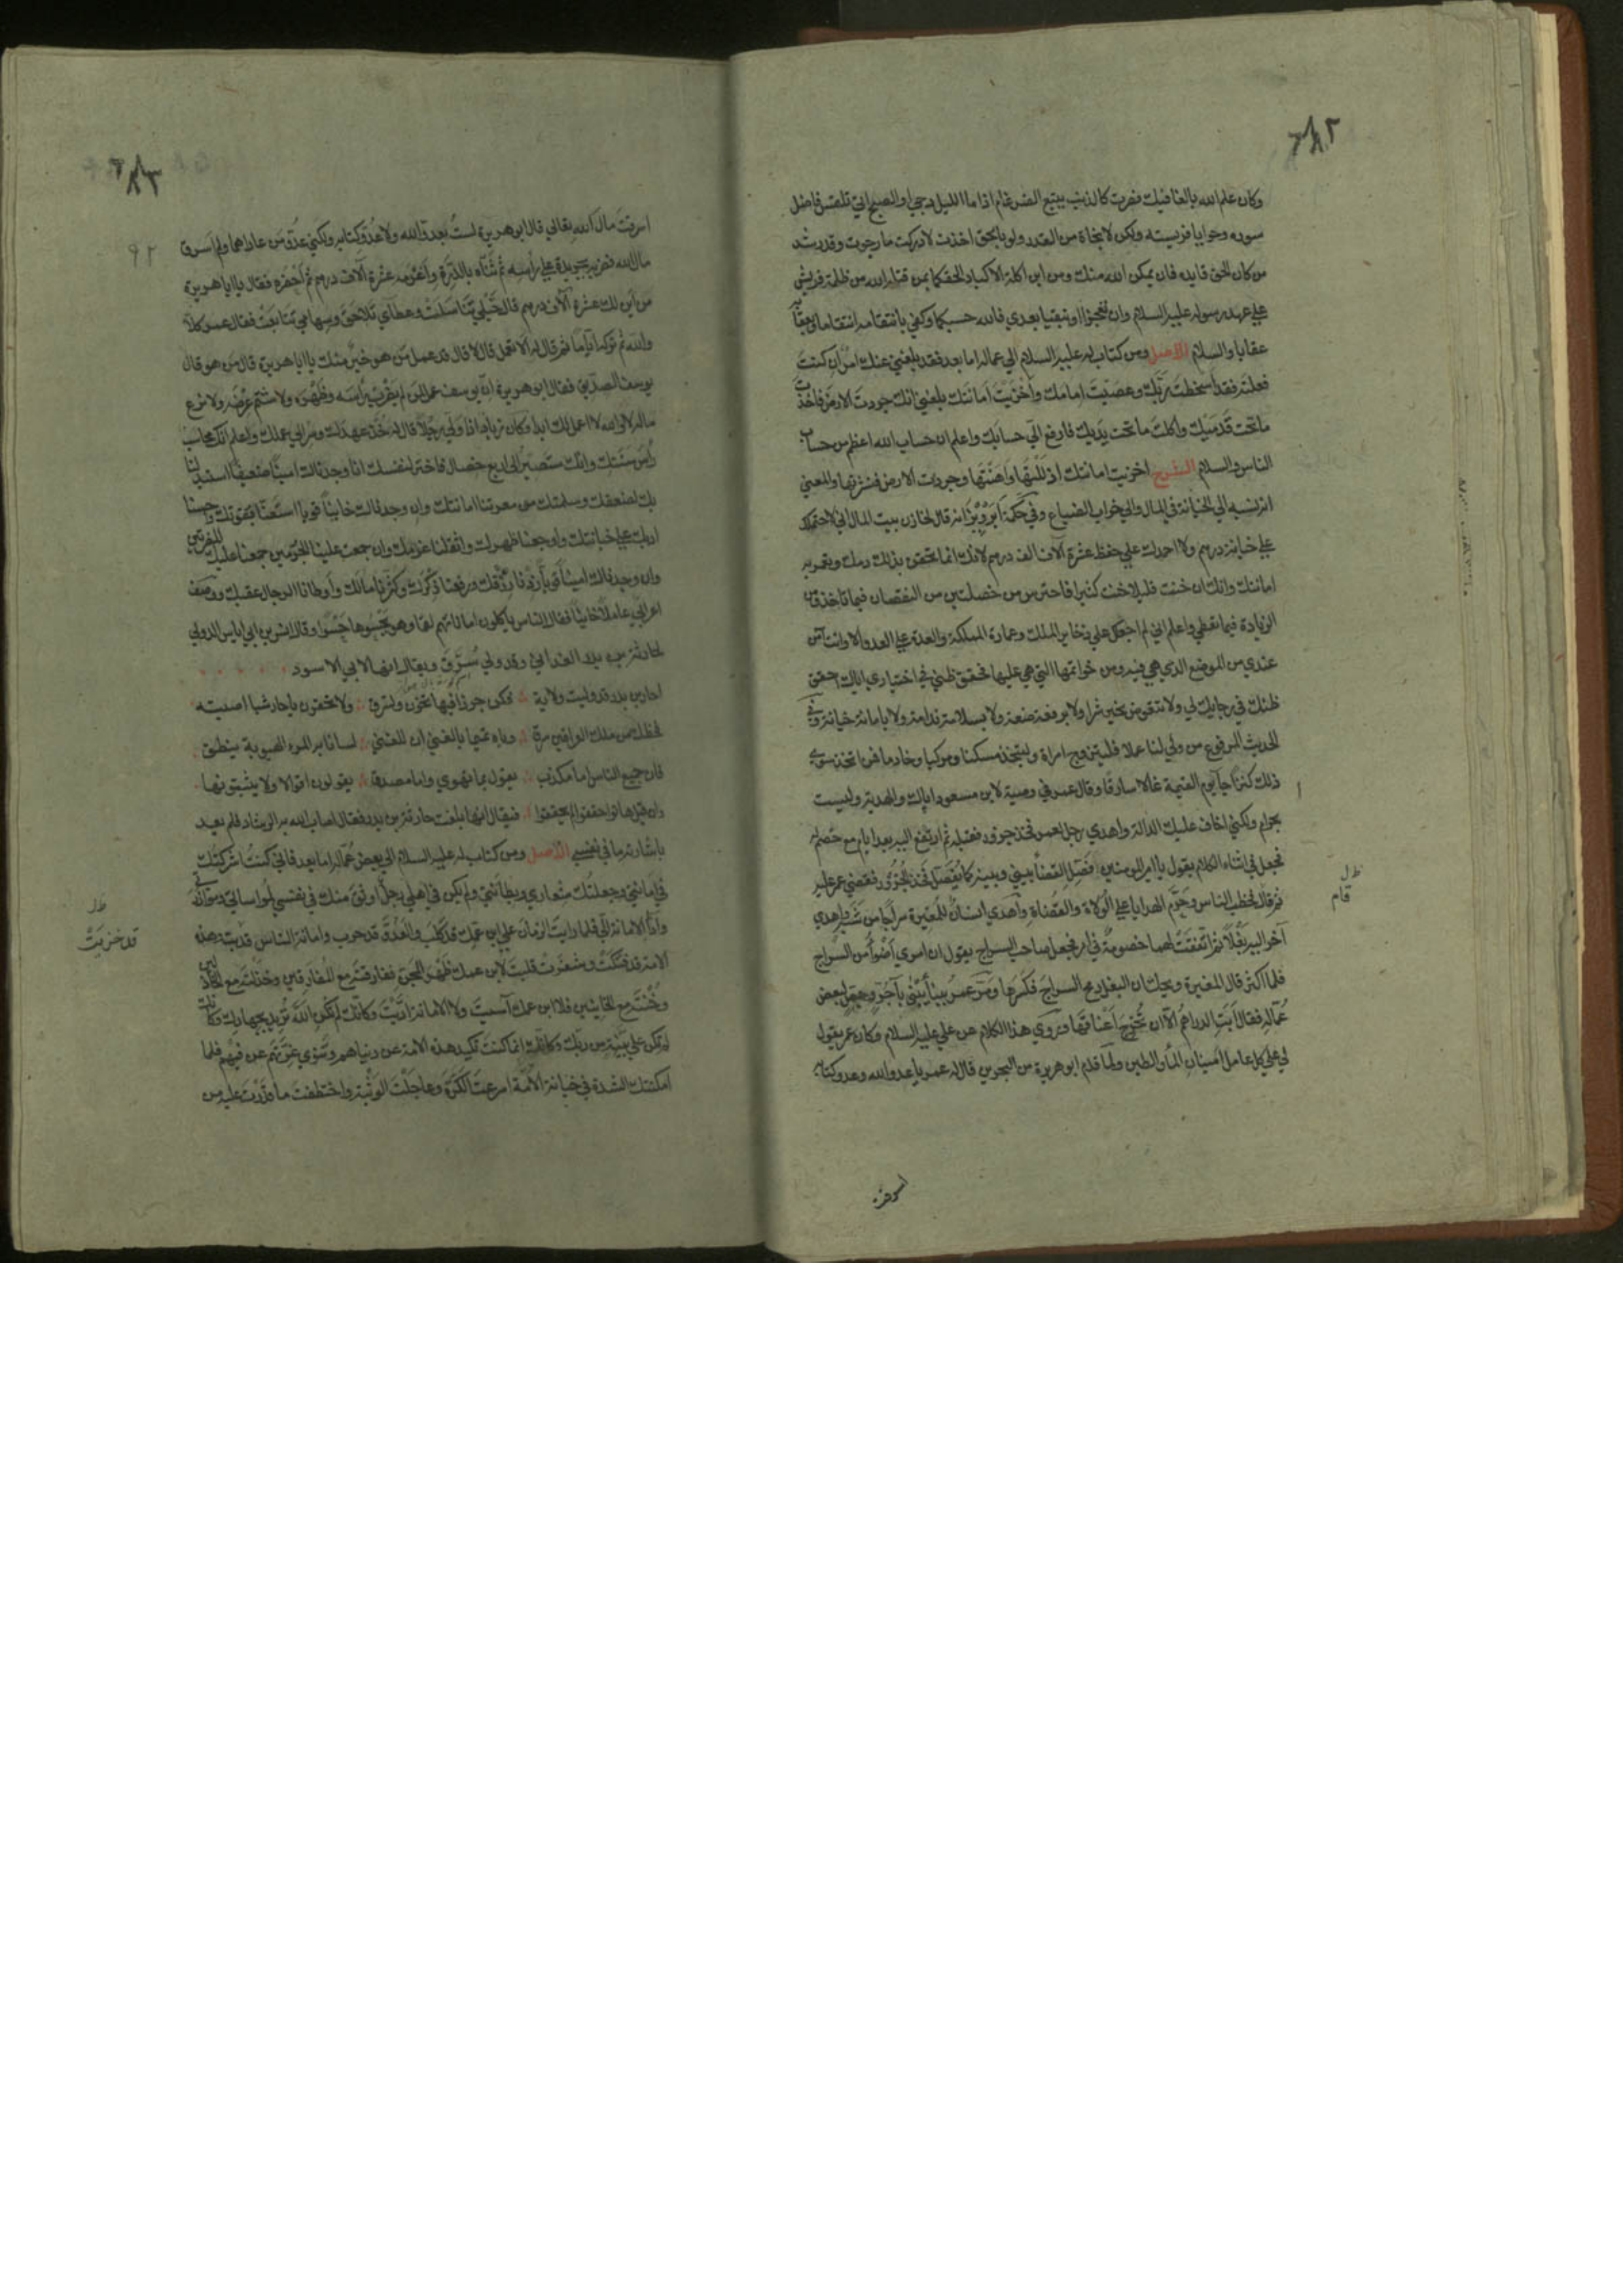 ٦٨٢
وكان علم الله بالغا فيك فصرت كالذئب يتبع الضرغام اذا ما الليل دجى او الصبح اتى تلقس فاضل
سوره وحوايا فريسته ولكن لا نجاة من القدر ولو بالحق اخذت لادركت ما رجوت وقد رشد
من كان الحق قايده فان يمكن الله منك ومن ابن اكلة الاكباد الحقكما بمن قتله الله من ظلمة قريش
علي عهد رسوله عليه السلام وان تعجزا او تبقيا بعدي فالله حسبكما وكفي بانتقامه انتقاما وبعقابه
عقابا والسلام الاصل ومن كتاب له عليه السلام الي عماله اما بعد فقد بلغني عنك امر ان كنت
فعلته فقد اسخطت ربك وعصيت امامك واخزيت امانتك بلغني انك جردت الارض فاخذت
ما تحت قدميك واكلت ما تحت يديك فارفع الي حسابك واعلم ان حساب الله اعظم من حساب
الناس والسلام الشرح اخزيت امانتك اذللتها واهنتها وجردت الارض قشرتها والمعني
انه نسبه الي الخيانة في المال والي خراب الضياع وفي حكمة ابرويز انه قال لخازن بيت المال اني لا احتملك
علي خيانة درهم ولا احمدك علي حفظ عشرة آلاف الف درهم لانك انما تحقن بذلك دمك وتعمر به
امانتك وانك ان خنت قليلا خنت كثيرا فاحترس من خصلتين من النقصان فيما تاخذ ومن
الزيادة فيما تعطي واعلم اني لم اجعلك علي ذخاير الملك وعمارة المملكة والعدة علي العدو الا وانت آمن
عندي من الموضع الذي هي فيه ومن خواتمها التي هي عليها فحقق ظني في اختياري اياك احقق
ظنك في رجايك لي ولا تتعوض بخير شرا ولا برفعة ضعة ولا بسلامة ندامة ولا بامانة خيانة وفي
الحديث المرفوع من ولي لنا عملا فليتزوج امراة وليتخذ مسكنا ومركبا وخادما فمن اتخذ سوي
ذلك كنزا جآ يوم القيمة غالا سارقا وقال عمر في وصيته لابن مسعود اياك والهدية وليست
بحرام ولكني اخاف عليك الدالة واهدي رجل لعمر فخذ جزور فقبله ثم ارتفع اليه بعد ايام مع خصم له
فجعل في اثناء الكلام يقول يا امير المومنين افصل القضا بيني وبينه كما يفصل فخذ الجزور فقضي عمر عليه
ثم قال فخطب الناس وحرم الهدايا علي الولاة والقضاة واهدي انسان للمغيرة سراجا من شبه واهدي
آخر اليه بغلا ثم اتفقت لهما خصومة في امر فجعل صاحب السراج يقول ان امري اضوأ من السراج
فلما اكثر قال المغيرة ويحك ان البغل رمح السراج فكسرها ومر عمر ببنآ يبني بآجر وجص لبعض
عماله فقال ابت الدراهم الا ان تخرج اعناقها وروي هذا الكلام عن علي عليه السلام وكان عمر يقول
لي علي كل عامل امينان المآ والطين ولما قدم ابو هريرة من البحرين قال له عمر يا عدو الله وعدو كتابه
ظ ل
قام
اسرقت
٦٨٣
٩٢
اسرقت مال الله تعالي قال ابو هريرة لست بعدو الله ولا عدو كتابه ولكني عدو من عاداهما ولم اسرق
مال الله فضربه بجريدة علي رأسه ثم ثناه بالدرة واغرمه عشرة آلاف درهم ثم احضره فقال يا ابا هريرة
من اين لك عشرة آلاف درهم قال خيلي تناسلت وعطآي تلاحق وسهامي تتابعت فقال عمر كلا
والله ثم تركه اياما ثم قال له الا تعمل قال لا قال قد عمل من هو خير منك يا ابا هريرة قال من هو قال
يوسف الصديق فقال ابو هريرة ان يوسف عمل لمن لم يضرب رأسه وظهره ولا شتم عرضه ولا نزع
ماله لا والله لا اعمل لك ابدا وكان زياد اذا ولي رجلا قال له خذ عهدك وسر الي عملك واعلم انك محاسب
رأس سنتك وانك ستصير الي اربع خصال فاختر لنفسك انا ان وجدناك امينا ضعيفا استبدلنا
بك لضعفك وسلمتك من معرتنا امانتك وان وجدناك خاينا قويا استعنا بقوتك واحسنا
ادبك علي خيانتك واوجعنا ظهرك واثقلنا غرمك وان جمعت علينا الجرمين جمعنا عليك المضرتين
وان وجدناك امينا قويا زدنا رزقك ورفعنا ذكرك وكثرنا مالك واوطانا الرجال عقبك ووصف
اعرابي عاملا خاينا فقال الناس ياكلون اماناتهم لقما وهو يحسوها حسوا وقال انس بن ابي اياس الدولي
لحارثة بن بدر الغداني وقد ولي سرق ويقال انها لابي الاسود
احار بن بدر قد وليت ولاية فكن جرذا فيها تخون وتسرق ولا تحقرن يا حار شيا اصبته
فحظك من ملك العراقين سرق وباه تميما بالغني ان للغني لسانا به المرء الهيوبة ينطق
فان جميع الناس اما مكذب يقول بما تهوي واما مصدق يقولون اقوالا ولا يثبتونها
وان قيل هاتوا حققوا لم يحققوا فيقال انها بلغت حارثة بن بدر فقال اصاب الله به الرشاد فلم يعد
باشارته ما في نفسي الاصل ومن كتاب له عليه السلام الي بعض عماله اما بعد فاني كنت اشركتك
في امانتي وجعلتك شعاري وبطانتي ولم يكن في اهلي رجل اوثق منك في نفسي لمواساتي وموازرتي
واداء الامانة الي فلما رايت الزمان علي ابن عمك قد كلب والعدو قد حرب وامانة الناس قد خزيت وهذه
الامة قد فتكت وشغرت قلبت لابن عمك ظهر المجن ففارقته مع المفارقين وخذلته مع الخاذلين
وخنته مع الخاينين فلا ابن عمك آسيت ولا الامانة اديت وكانك لم تكن الله تريد بجهادك وكانك
لم تكن علي بينة من ربك وكانك انما كنت تكيد هذه الامة عن دنياهم وتنوي غرتهم عن فيئهم فلما
امكنتك الشدة في خيانة الامة اسرعت الكرة وعاجلت الوثبة واختطفت ما قدرت عليه من
ظ ل
قد خزيت